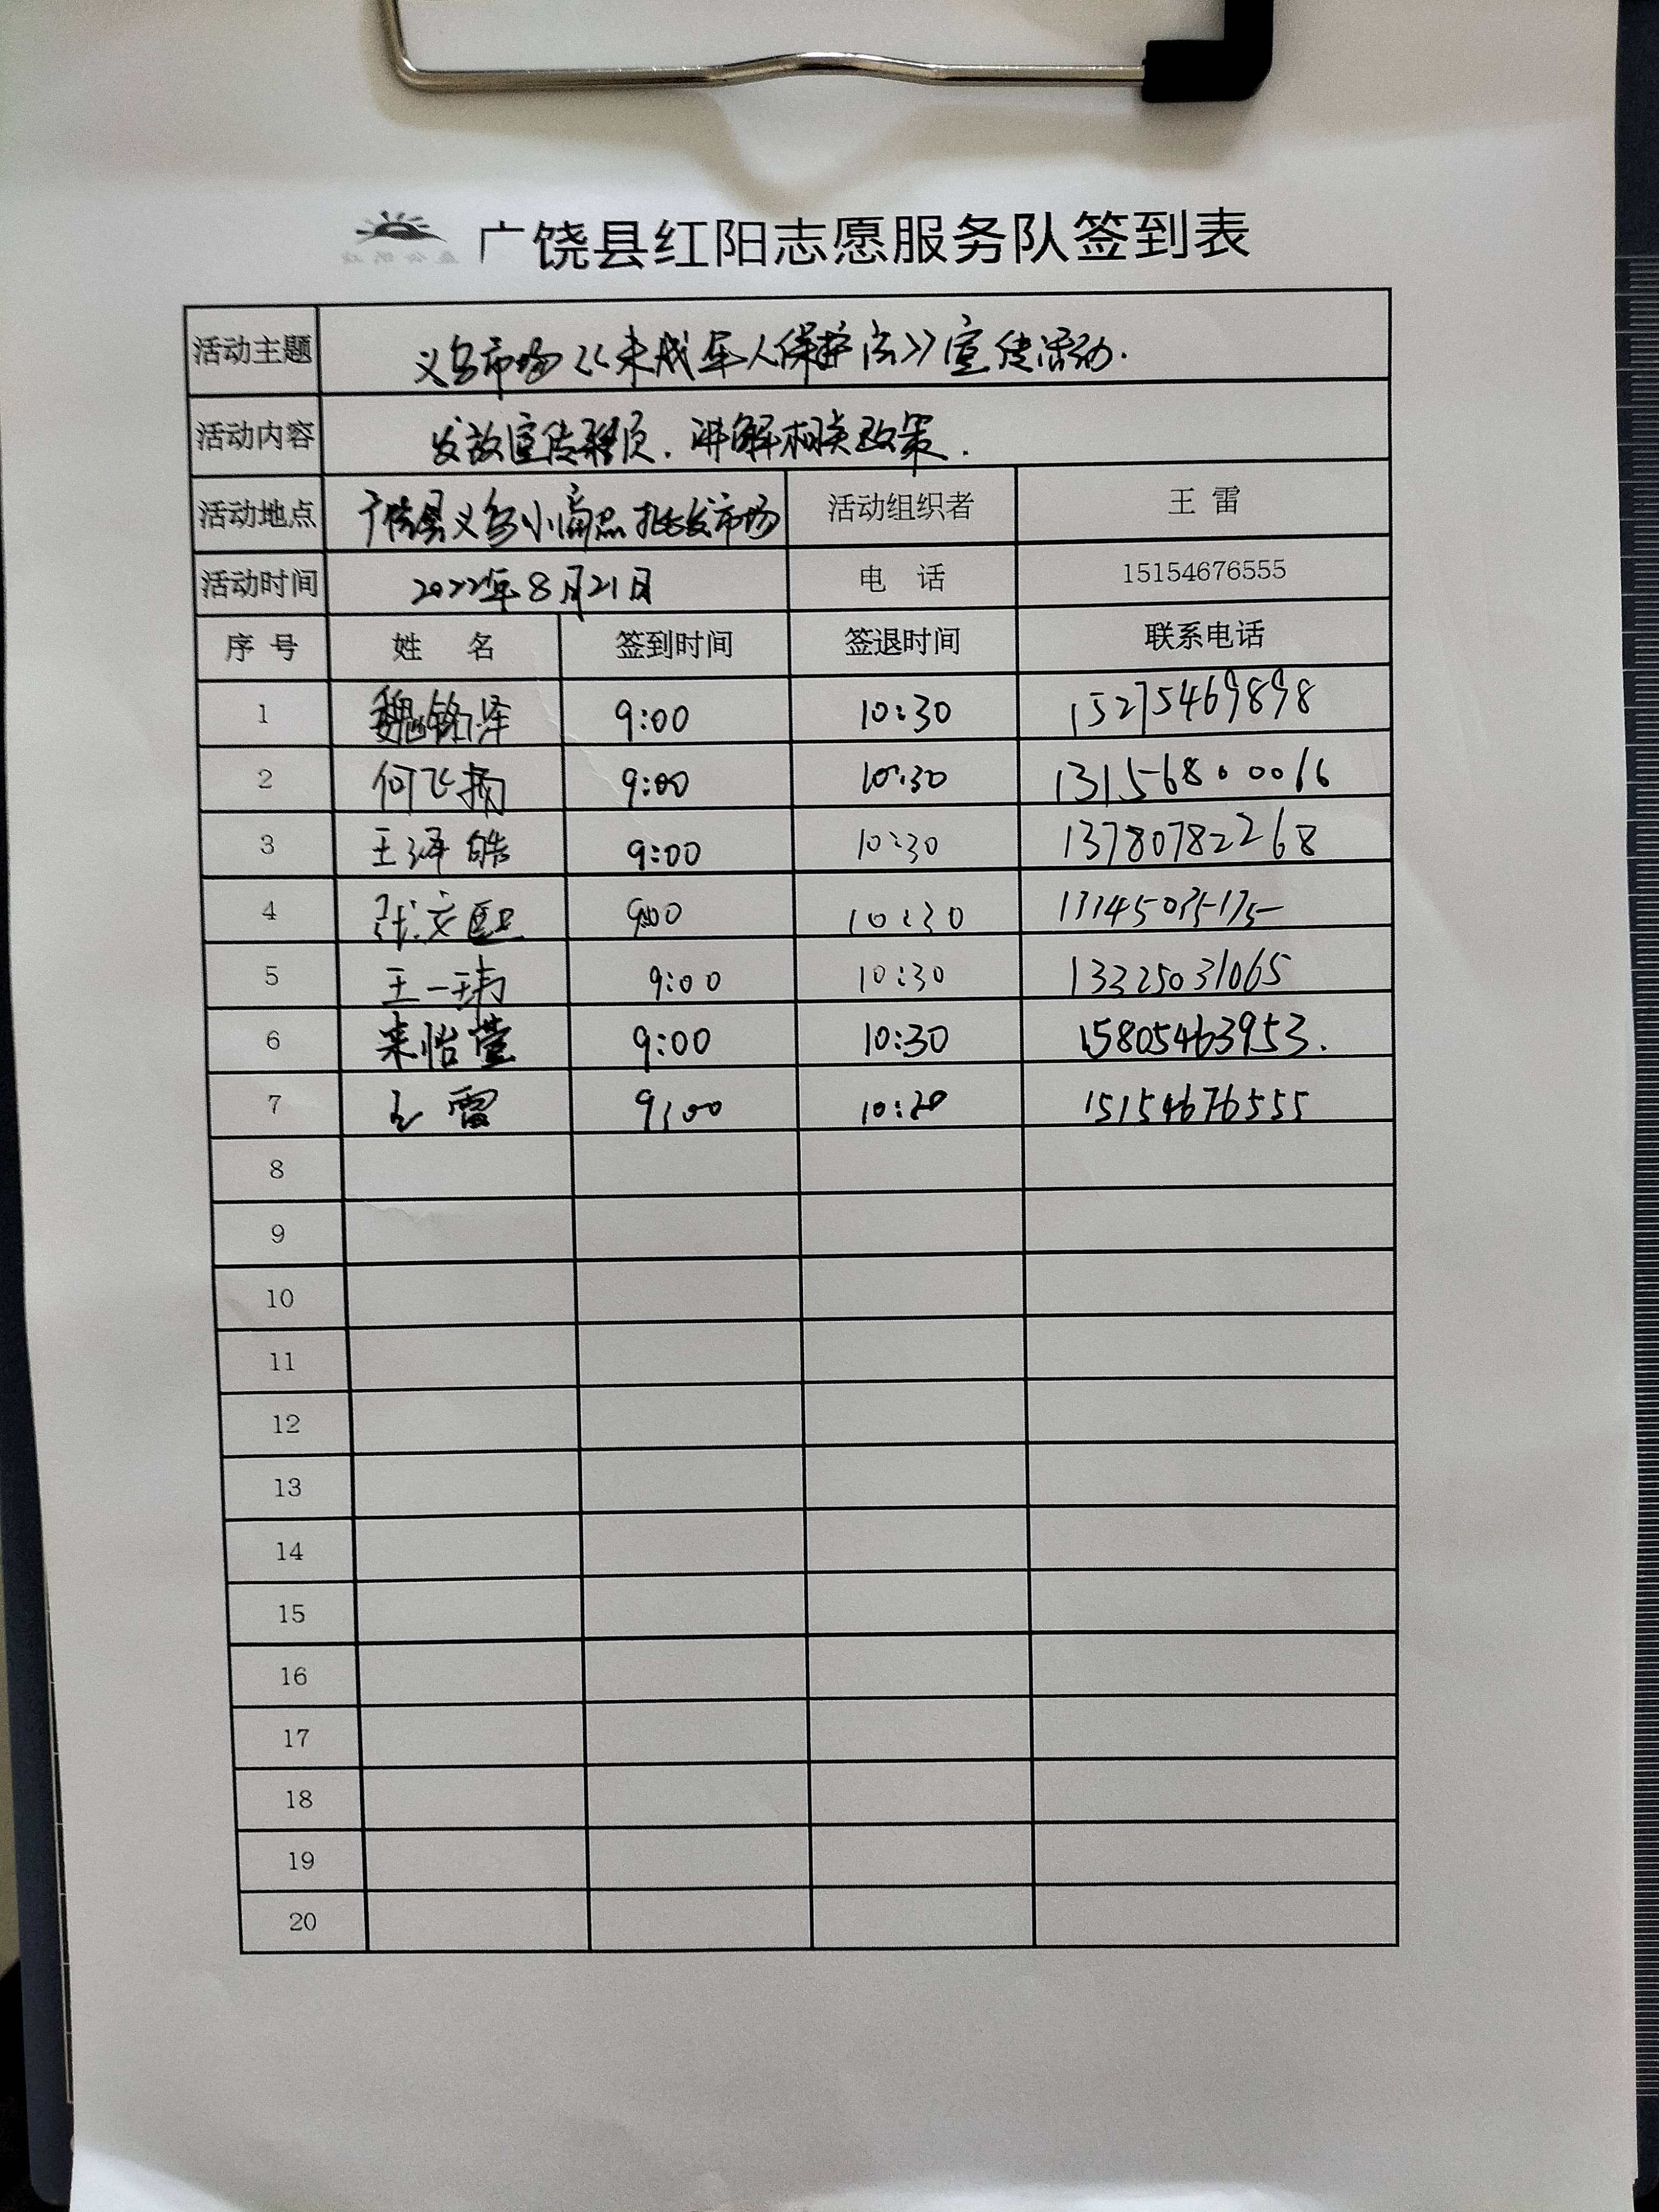 广饶县红阳志愿服务队签到表
活动主题 义乌市场《未成年人保护法》宣传活动.
活动内容 发放宣传彩页.讲解相关政策.
活动地点 广饶县义乌小商品批发市场 活动组织者 王雷
活动时间 2022年8月21日 电话 15154676555
序号 姓名 签到时间 签退时间 联系电话
1 魏铭泽 9:00 10:30 15275469898
2 何飞扬 9:00 10:30 13156800016
3 王泽皓 9:00 10:30 13780782268
4 张文熙 9:00 10:30
5 王一玮 9:00 10:30 13325031065
6 来怡莹 9:00 10:30 15805463953.
7 王雷 9:00 10:30 15154676555
8
9
10
11
12
13
14
15
16
17
18
19
20